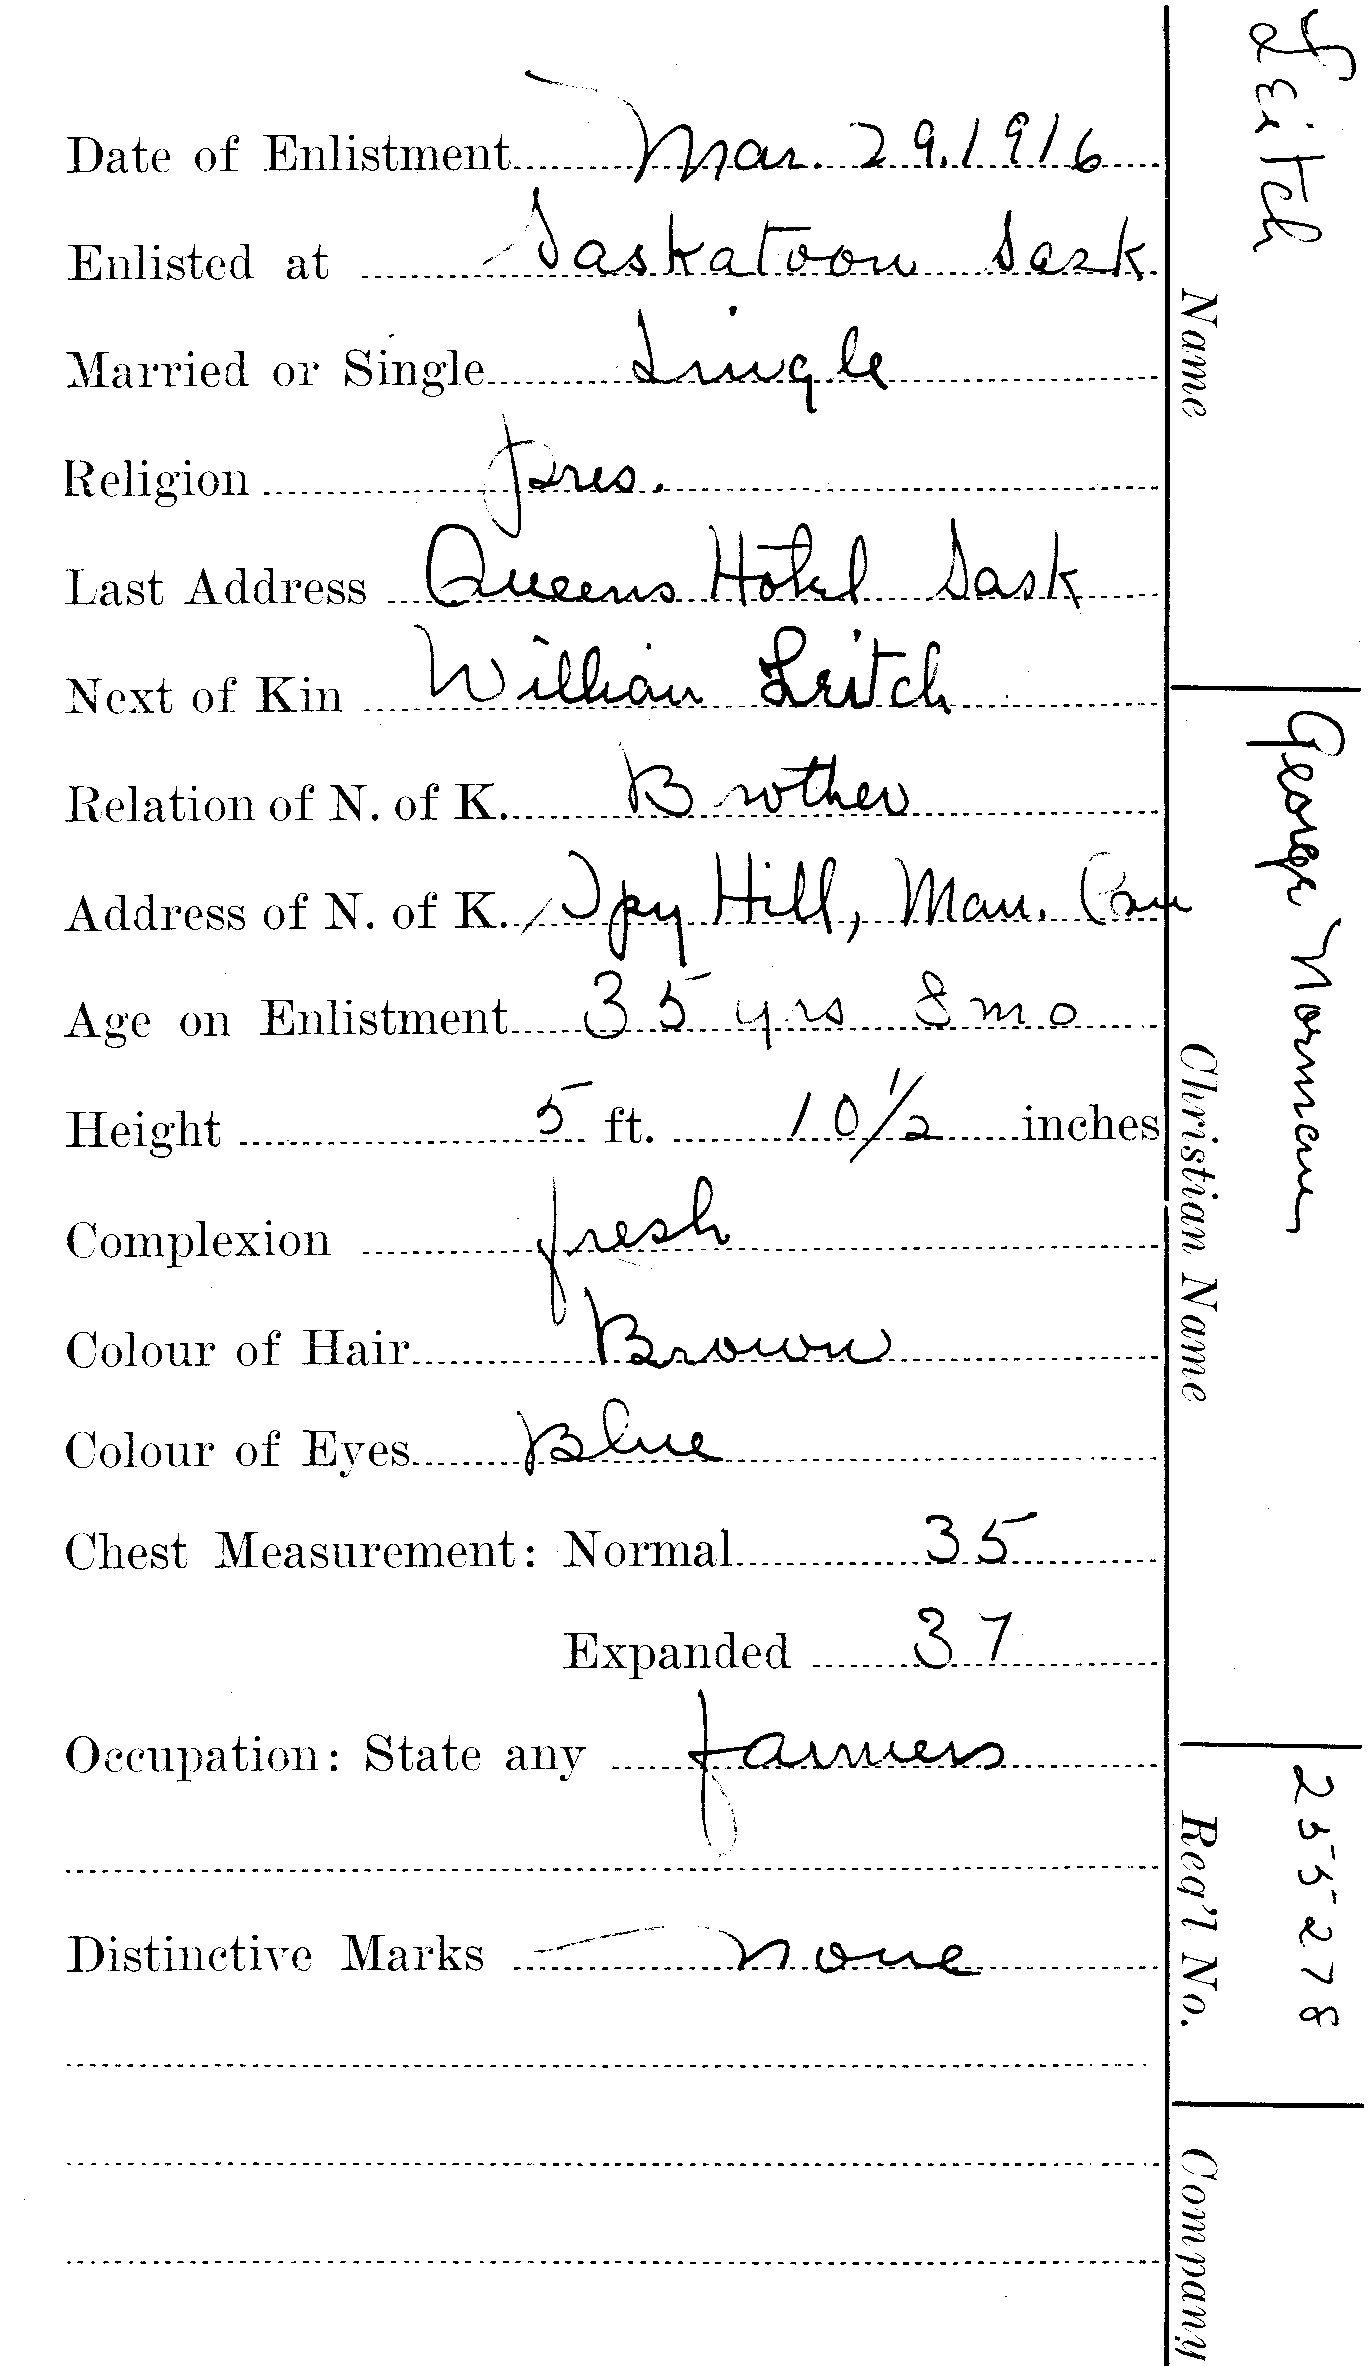 Date of Enlistment Mar. 29. 1916
Enlisted at Saskatoon Sask
Married or Single Single
Religion Pres.
Last Address Queens Hotel Sask
Next of Kin William Leitch
Relation of N. of K. Brother
Address of N. of K. Spy Hill, Man. Can
Age on Enlistment 35 yrs 8 mo
Height 5 ft. 10 1/2 inches
Complexion fresh
Colour of Hair Brown
Colour of Eyes Blue
Chest Measurement: Normal 35
Expanded 37
Occupation: State any farmers
Distinctive Marks none
Leitch
Name
George Norman
Christian Name
255278
Reg'l No.
Company